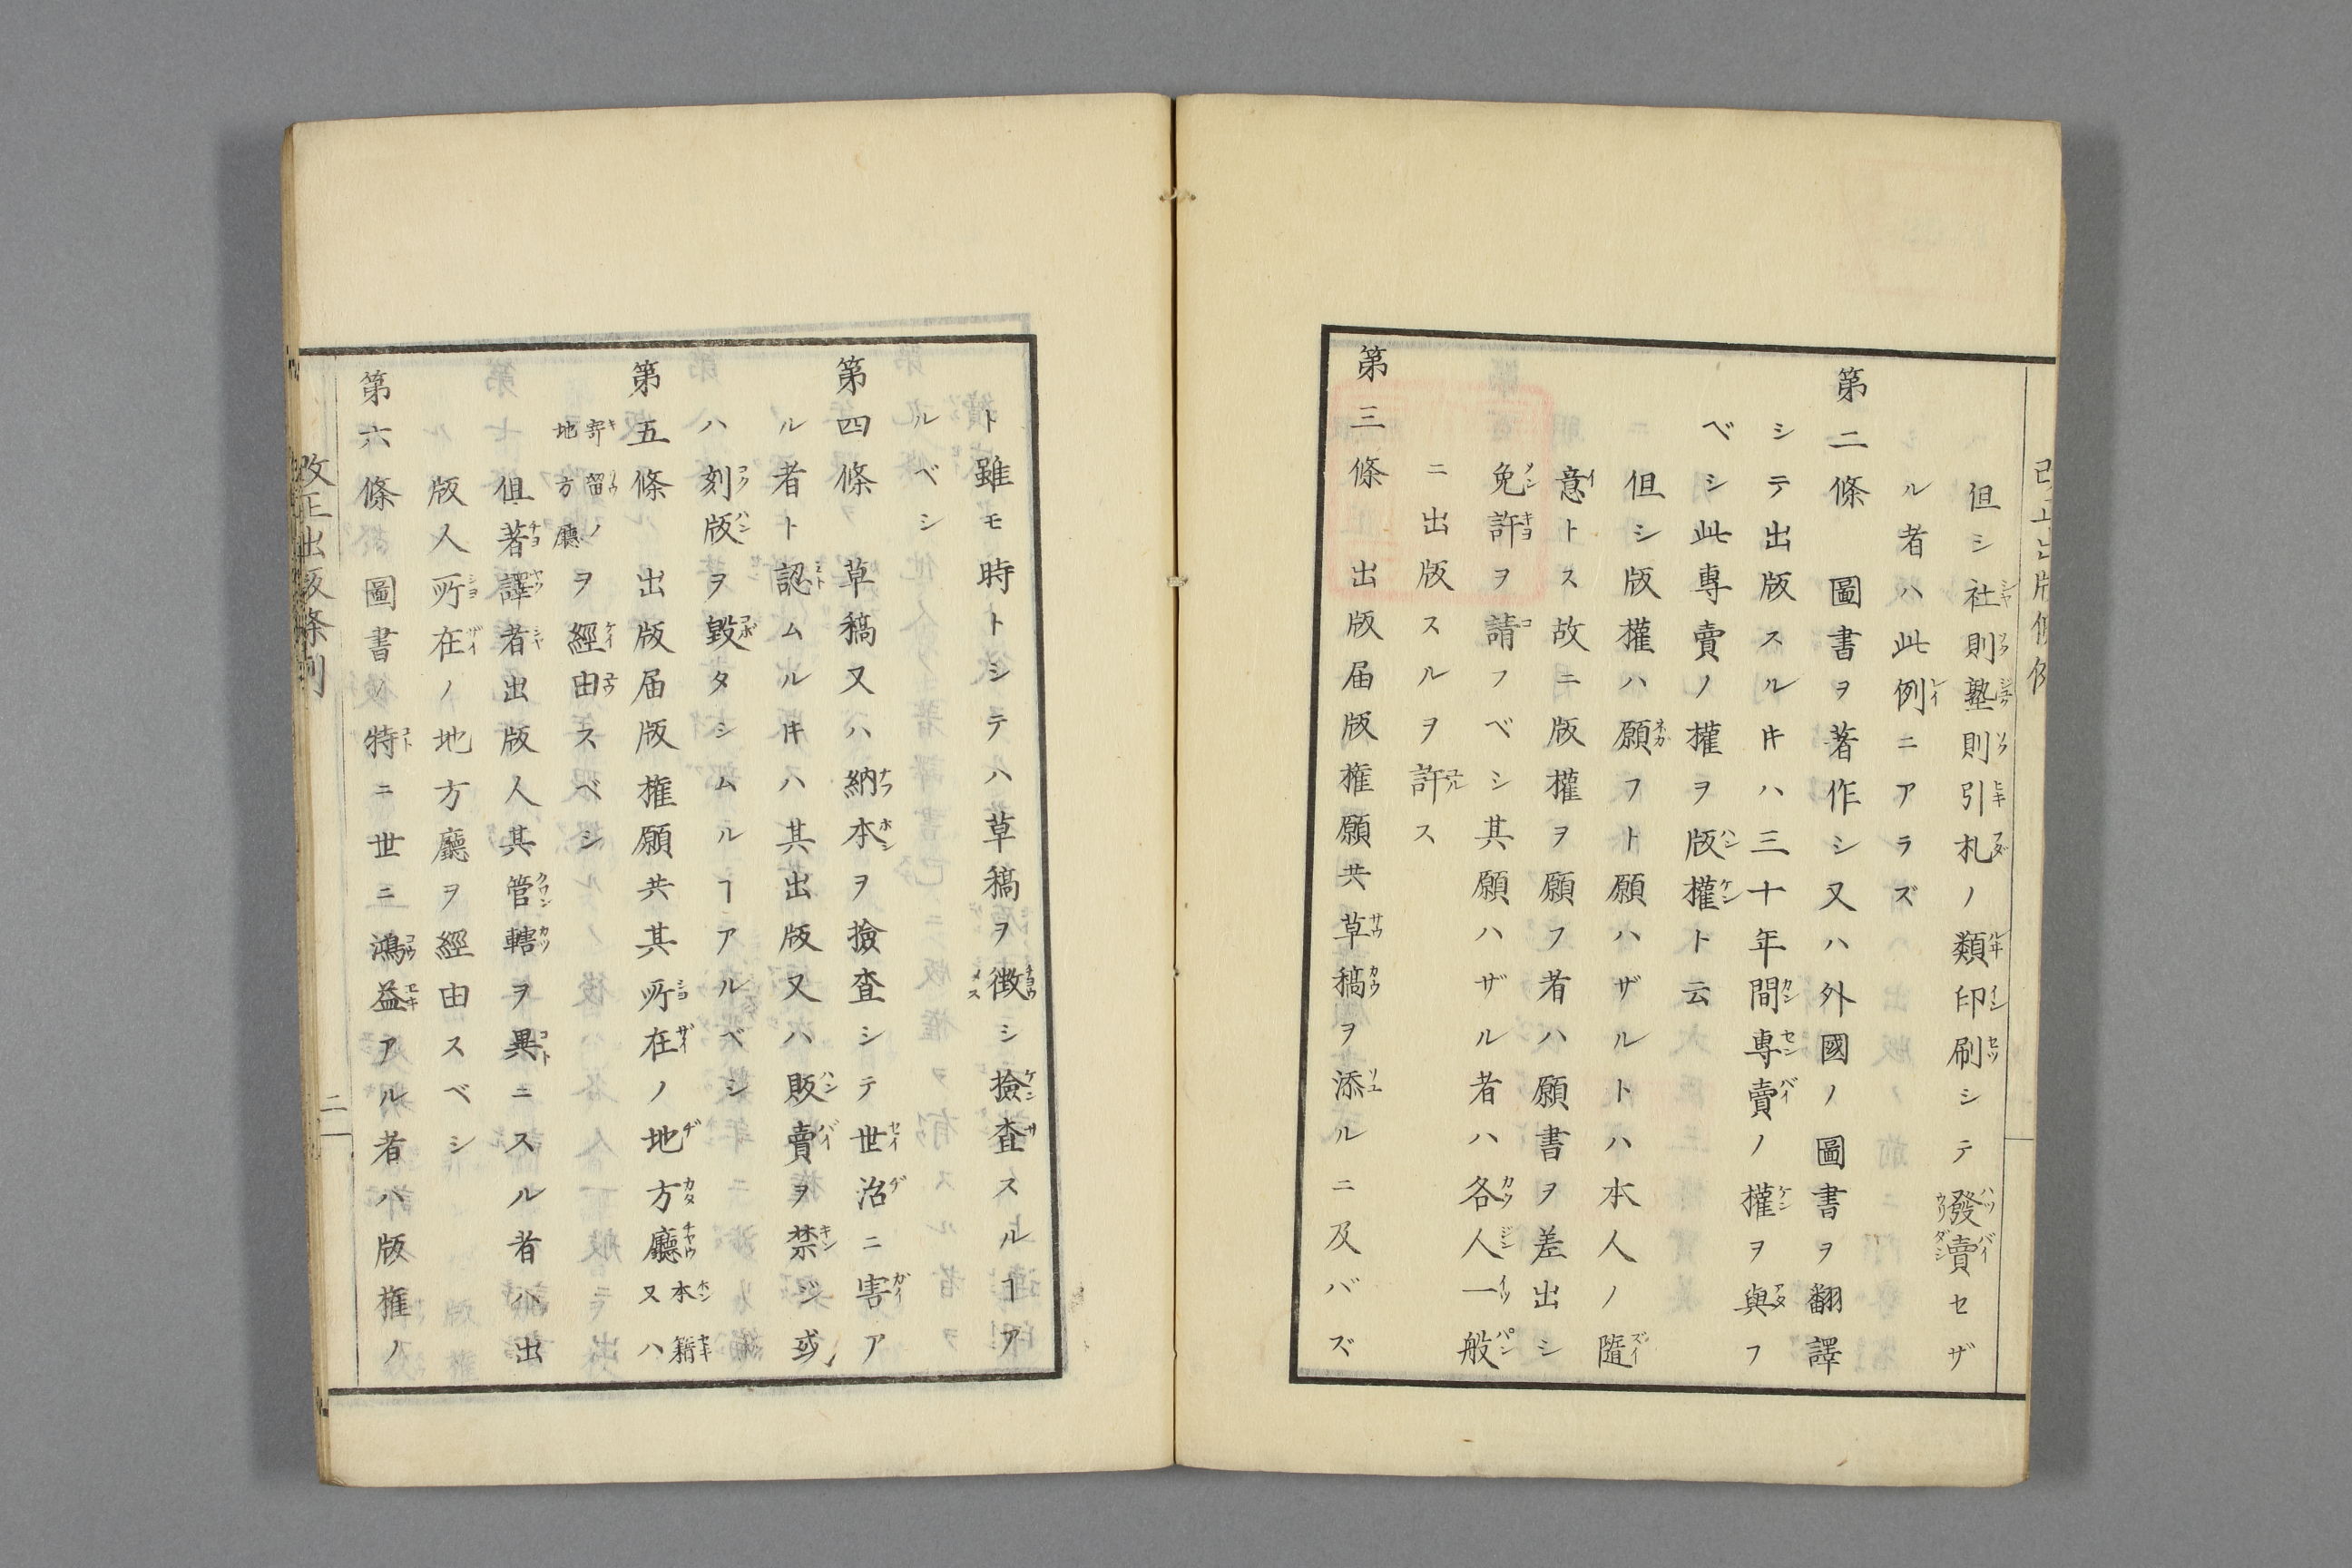 但シ社則塾則引札ノ類印刷シテ發賣セザ
ル者ハ此例ニアラズ
第二條　圖書ヲ著作シ又ハ外國ノ圖書ヲ翻譯
シテ出版スルキハ三十年間專賣ノ權ヲ與フ
ベシ此專賣ノ權ヲ版權ト云
但シ版權ハ願フト願ハザルトハ本人ノ隨
意トス故ニ版權ヲ願フ者ハ願書ヲ差出シ
免許ヲ請フベシ其願ハザル者ハ各人一般
ニ出版スルヲ許ス
第三條　出版届版権願共草稿ヲ添ルニ及バズ
ト雖モ時トシテハ草稿ヲ徴シ撿査スルヿア
ルベシ
第四條　草稿又ハ納本ヲ撿査シテ世治ニ害ア
ル者ト認ムルキハ其出版又ハ販賣ヲ禁ジ或
ハ刻版ヲ毀タシムルヿアルベシ
第五條　出版届版権願共其所在ノ地方廳又ハ本籍
寄留ノ地方廳ヲ經由スベシ
但著譯者出版人其管轄ヲ異ニスル者ハ出
版人所在ノ地方廳ヲ經由スベシ
第六條　圖書ノ特ニ世ニ鴻益アル者ハ版権ノ
改正出版條例
二